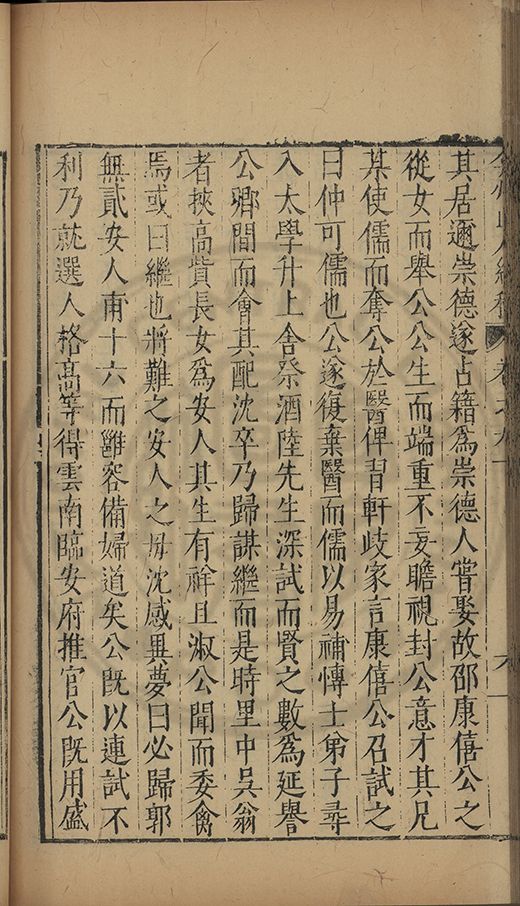 其居邇崇德遂占籍為崇德人嘗娶故邵康僖公之
從女而舉公公生而端重不妄瞻視封公意才其兄
某使儒而奪公於醫俾習軒歧家言康僖公召試之
曰仲可儒也公遂復棄醫而儒以易補博士弟子尋
入太學升上舍祭酒陸先生深試而賢之數為延譽
公卿間而會其配沈卒乃歸謀繼而是時里中吳翁
者挾高貲長女為安人其生有祥且淑公聞而委禽
焉或曰繼也將難之安人之母沈感異夢曰必歸郭
無貳安人甫十六而雝容備婦道矣公既以連試不
利乃就選人格高等得雲南臨安府推官公既用盛